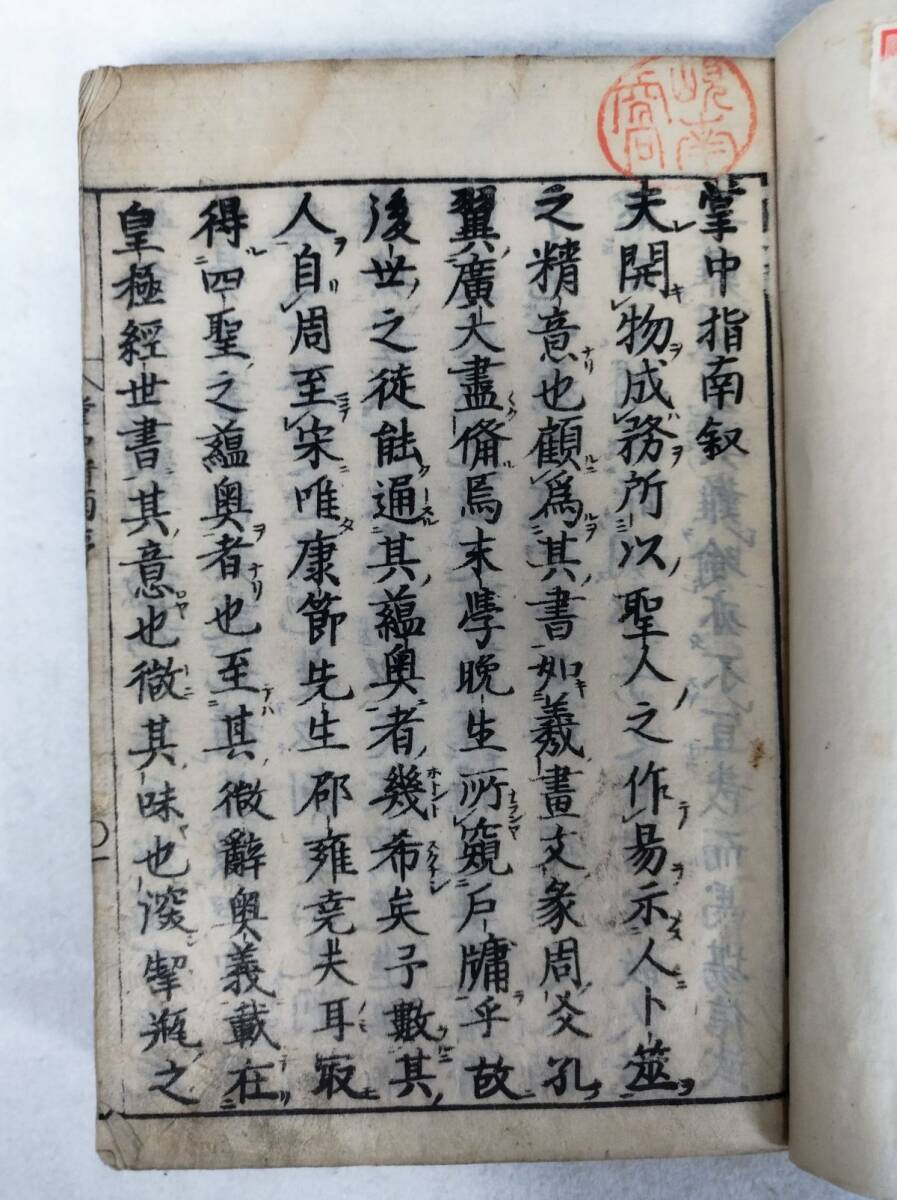 掌中指南叙
夫開物成務所以聖人之作易示人卜筮
之精意也顧爲其書如羲畫文彖周爻孔
翼廣大盡備焉末學晩生所窺戶牖乎故
後世之徒能通其蘊奥者幾希矣予數其
人自周至宋唯康節先生邵雍堯夫耳寂
得四聖之蘊奥者也至其微辭奥義載在
皇極經世書其意也微其味也深挈瓶之